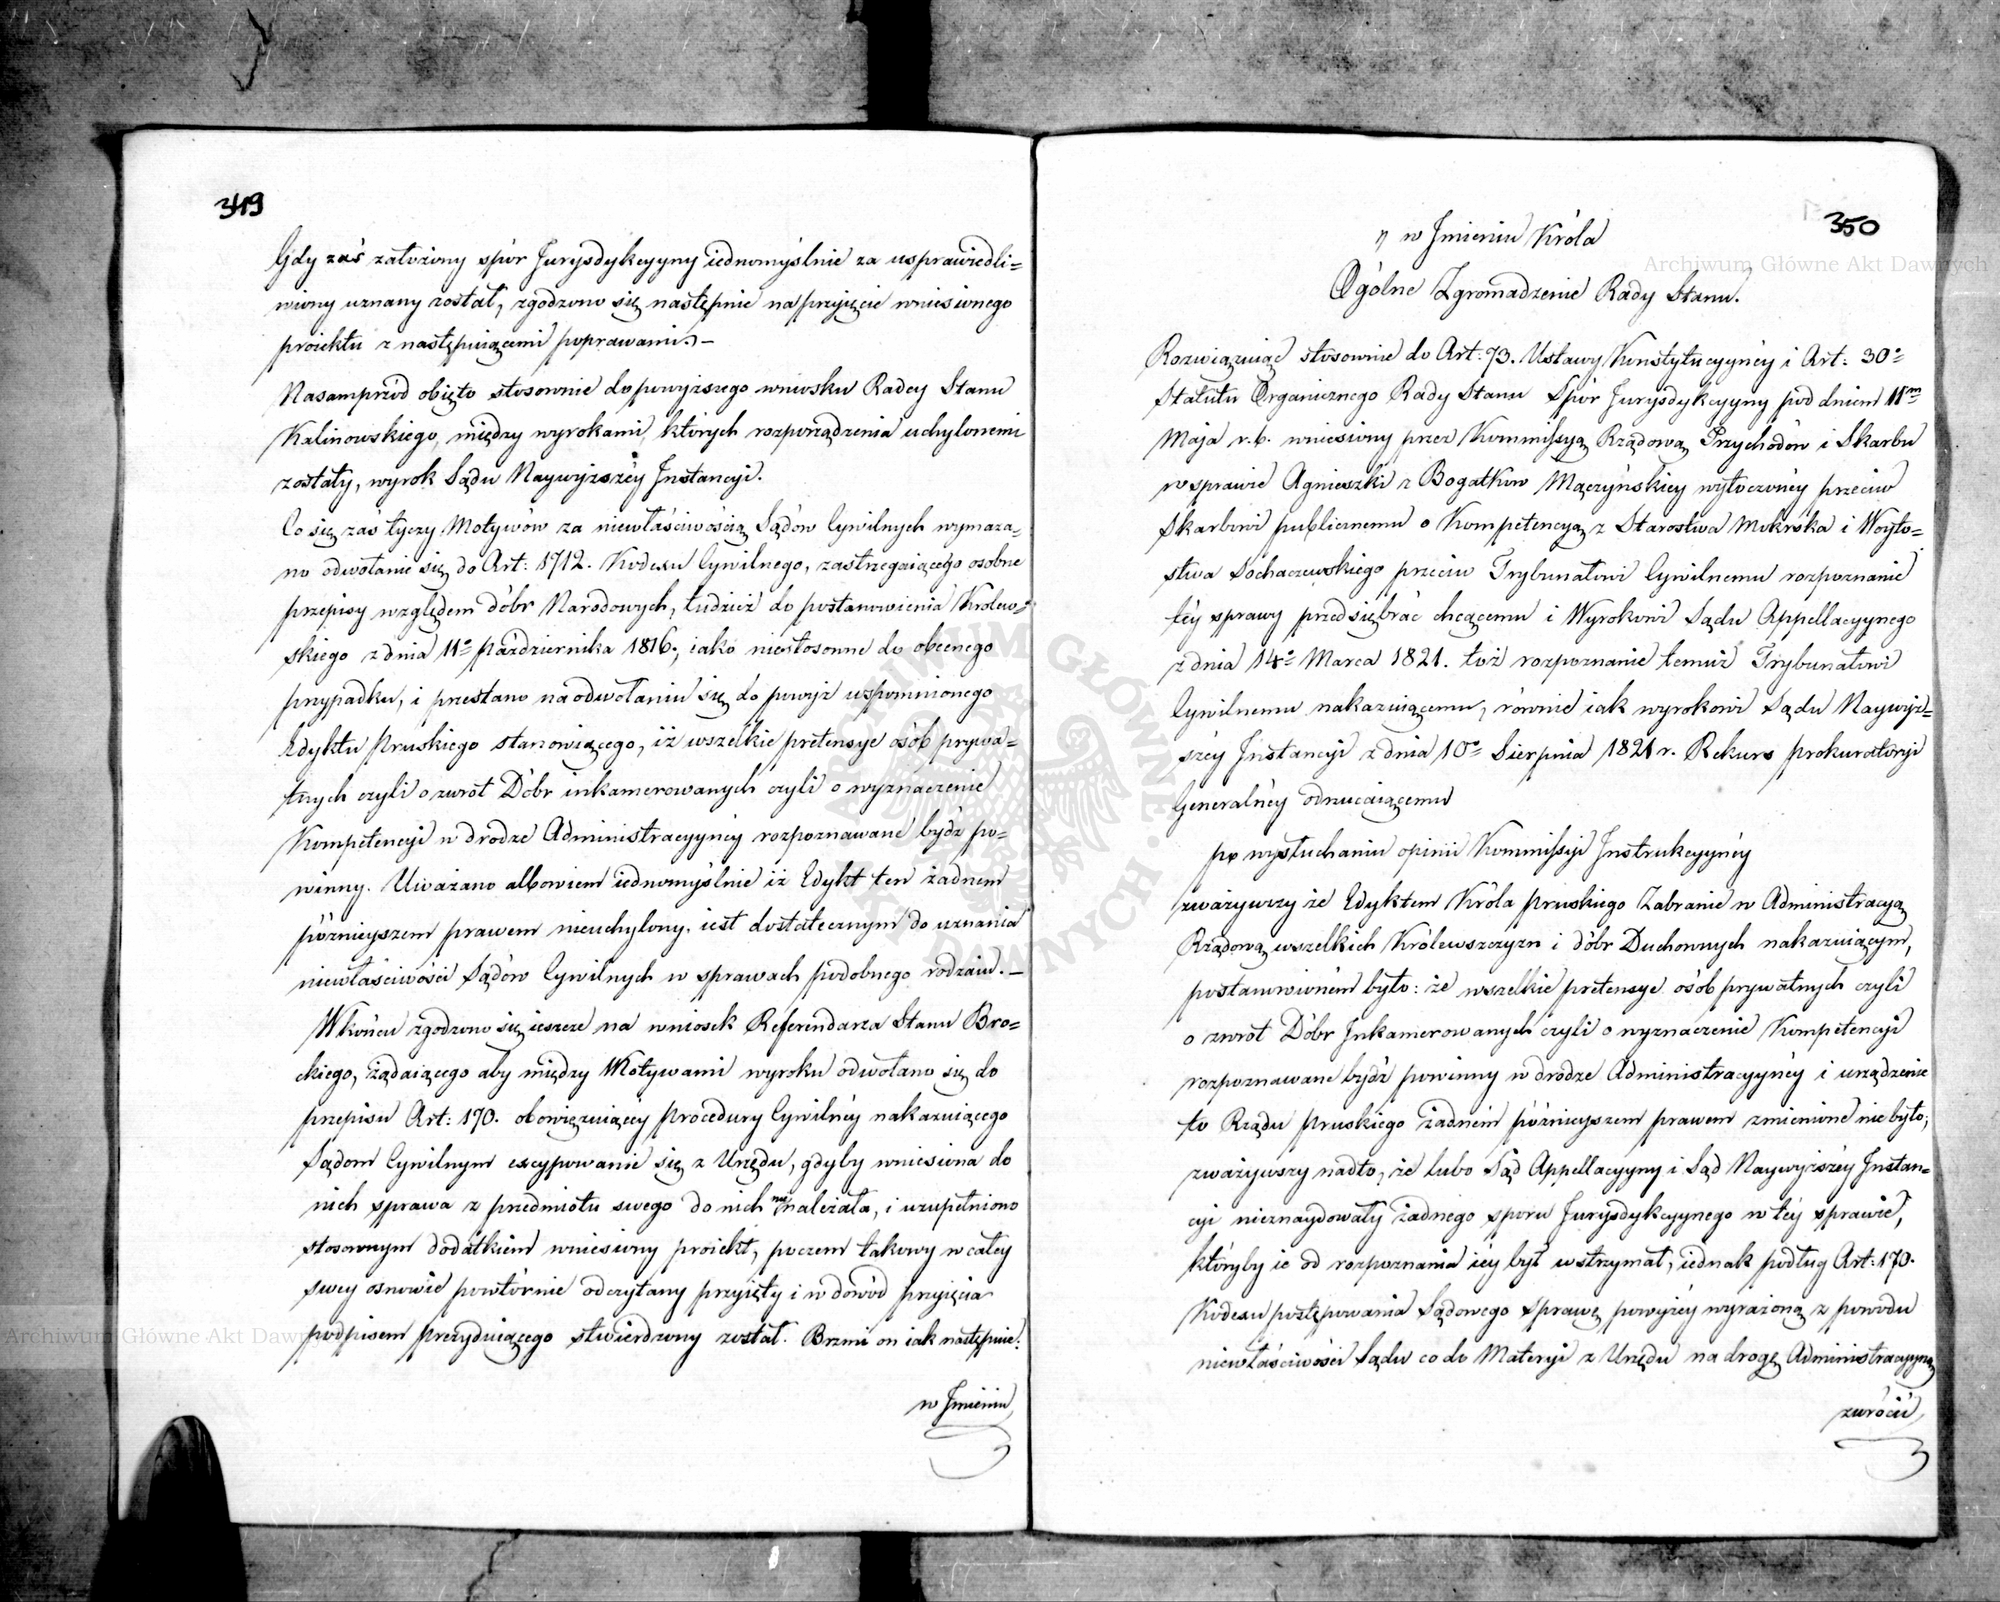 349
Gdy zaś założony spór Jurysdykcyyny iednomyślnie za usprawiedli=
wiony uznany został, zgodzono się następnie na przyięcie wniesionego
proiektu z następuiącemi poprawami. –
Nasamprzód obięto stosownie do powyższego wniosku Radcy Stanu
Kalinowskiego, między wyrokami, których rozporządzenia uchylonemi
zostały, wyrok Sądu Naywyższéy Instancyi.
Co się zaś tyczy Motywów za niewłaściwością Sądów Cywilnych wymaza=
no odwołanie się do Art: 1712. Kodexu Cywilnego, zastrzegaiącego osobne
przepisy względem dóbr Narodowych, tudzież do postanowienia Królew=
skiego z dnia 11º Października 1816., iako niestosowne do obecnego
przypadku, i przestano na odwołaniu się do powyż wspomnionego
Edyktu Pruskiego stanowiącego, iż wszelkie pretensye osób prywa=
tnych czyli o zwrot Dóbr inkamerowanych czyli o wyznaczenie
Kompetencyi w drodze Administracyynéy rozpoznawane bydź po=
winny. Uważano albowiem iednomyślnie iż Edykt ten żadnem
późnieyszem prawem nieuchylony, iest dostatecznym do uznania
niewłaściwości Sądów Cywilnych w sprawach podobnego rodzaiu. –
W końcu zgodzono się ieszcze na wniosek Referendarza Stanu Bro=
ckiego, żądaiącego aby między Motywami wyroku odwołano się do
przepisu Art: 170. obowięzuiącéy Procedury Cywilnéy nakazuiącego
Sądom Cywilnym excypowanie się z Urzędu, gdyby wniesiona do
nich sprawa z przedmiotu swego do nich nie należała, i uzupełniono
stosownym dodatkiem wniesiony proiekt, poczem takowy w całey
swey osnowie powtórnie odczytany przyięty i w dowód przyięcia
podpisem Prezyduiącego stwierdzony został. Brzmi on iak następnie:
w Jmieniu
350
w Jmieniu Króla
Ogólne Zgromadzenie Rady Stanu.
Rozwiązuiąc stosownie do Art: 73. Ustawy Konstytucyynéy i Art: 30º
Statutu Organicznego Rady Stanu Spór Jurysdykcyyny pod dniem 11m
Maja r. b. wniesiony przez Kommissyą Rządową Przychodów i Skarbu
w sprawie Agnieszki z Bogatków Mączyńskiey wytoczonéy przeciw
Skarbowi publicznemu o Kompetencyą z Starostwa Mokrska i Woyto=
stwa Sochaczewskiego przeciw Trybunałowi Cywilnemu rozpoznanie
téy sprawy przedsiębrać chcącemu i Wyrokowi Sądu Appellacyynego
z dnia 14º Marca 1821. toż rozpoznanie temuż Trybunałowi
Cywilnemu nakazuiącemu, równie iak wyrokowi Sądu Naywyż=
széy Instancyi z dnia 10º Sierpnia 1821 r. Rekurs Prokuratoryi
Generalnéy odrzucaiącemu
po wysłuchaniu opinii Kommissyi Instrukcyynéy
zważywszy że Edyktem Króla Pruskiego Zabranie w Administracyą
Rządową wszelkich Królewszczyzn i dóbr Duchownych nakazuiącym,
postanowioném było: że wszelkie pretensye osób prywatnych czyli
o zwrot Dóbr Jnkamerowanych czyli o wyznaczenie Kompetencyi
rozpoznawane bydź powinny w drodze Administracyynéy i urządzenie
to Rządu Pruskiego żadném późnieyszem prawem zmienione nie było;
zważywszy nadto, że lubo Sąd Appellacyyny i Sąd Naywyższéy Jnstan=
cyi nieznaydowały żadnego sporu Jurysdykcyynego w téy sprawie,
któryby ie od rozpoznania iéy był wstrzymał, iednak podług Art: 170.
Kodexu postępowania Sądowego sprawę powyżéy wyrażoną z powodu
niewłaściwości Sądu co do Materyi z Urzędu na drogę Administracyyną
zwrócić
Archiwum Główne Akt Dawnych
Archiwum Główne Akt Dawnych
ARCHIWUM GŁÓWNE AKT DAWNYCH